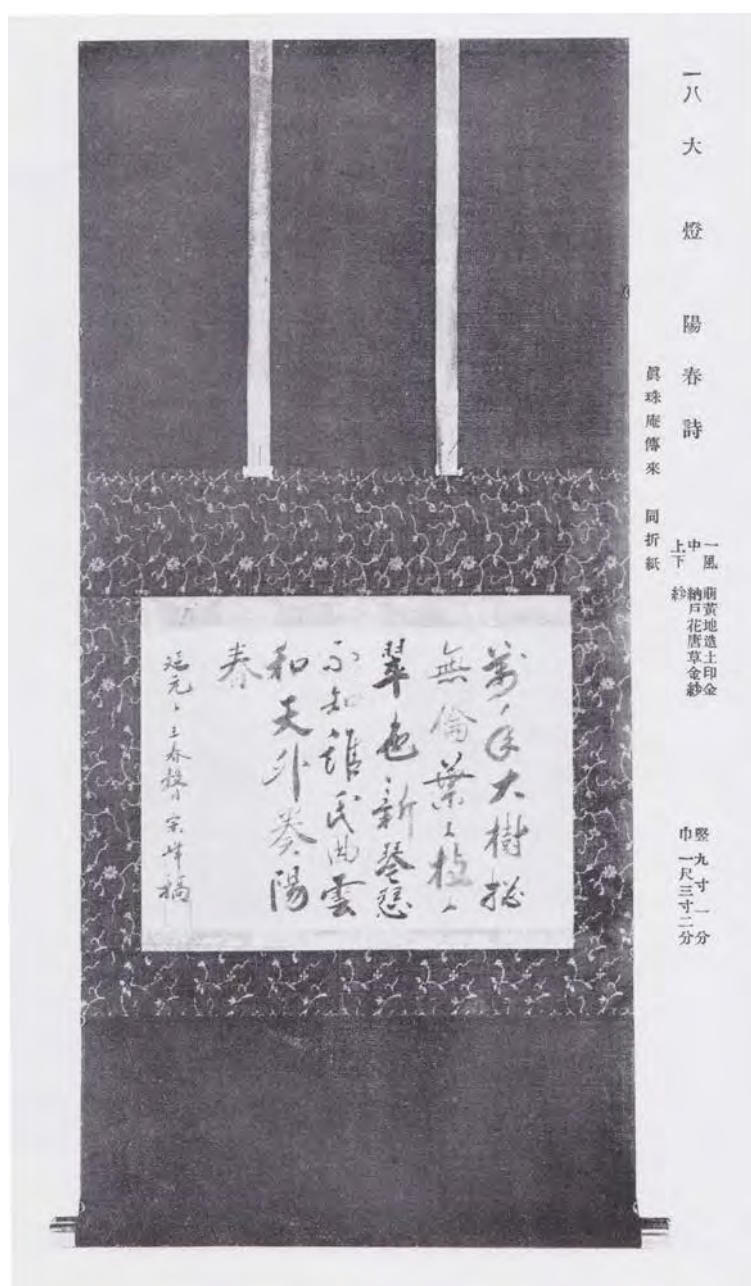 一八 大燈 陽春詩
眞珠庵傳來 同折紙
一風 萠黃地造土印金
中 納戸花唐草金紗
上下 紗
竪 九寸一分
巾 一尺三寸二分
萬年大樹
無倫葉々枝々
翠色新琴
不知誰氏曲雲
和天外奏陽
春
延元々王春 宗峰稿